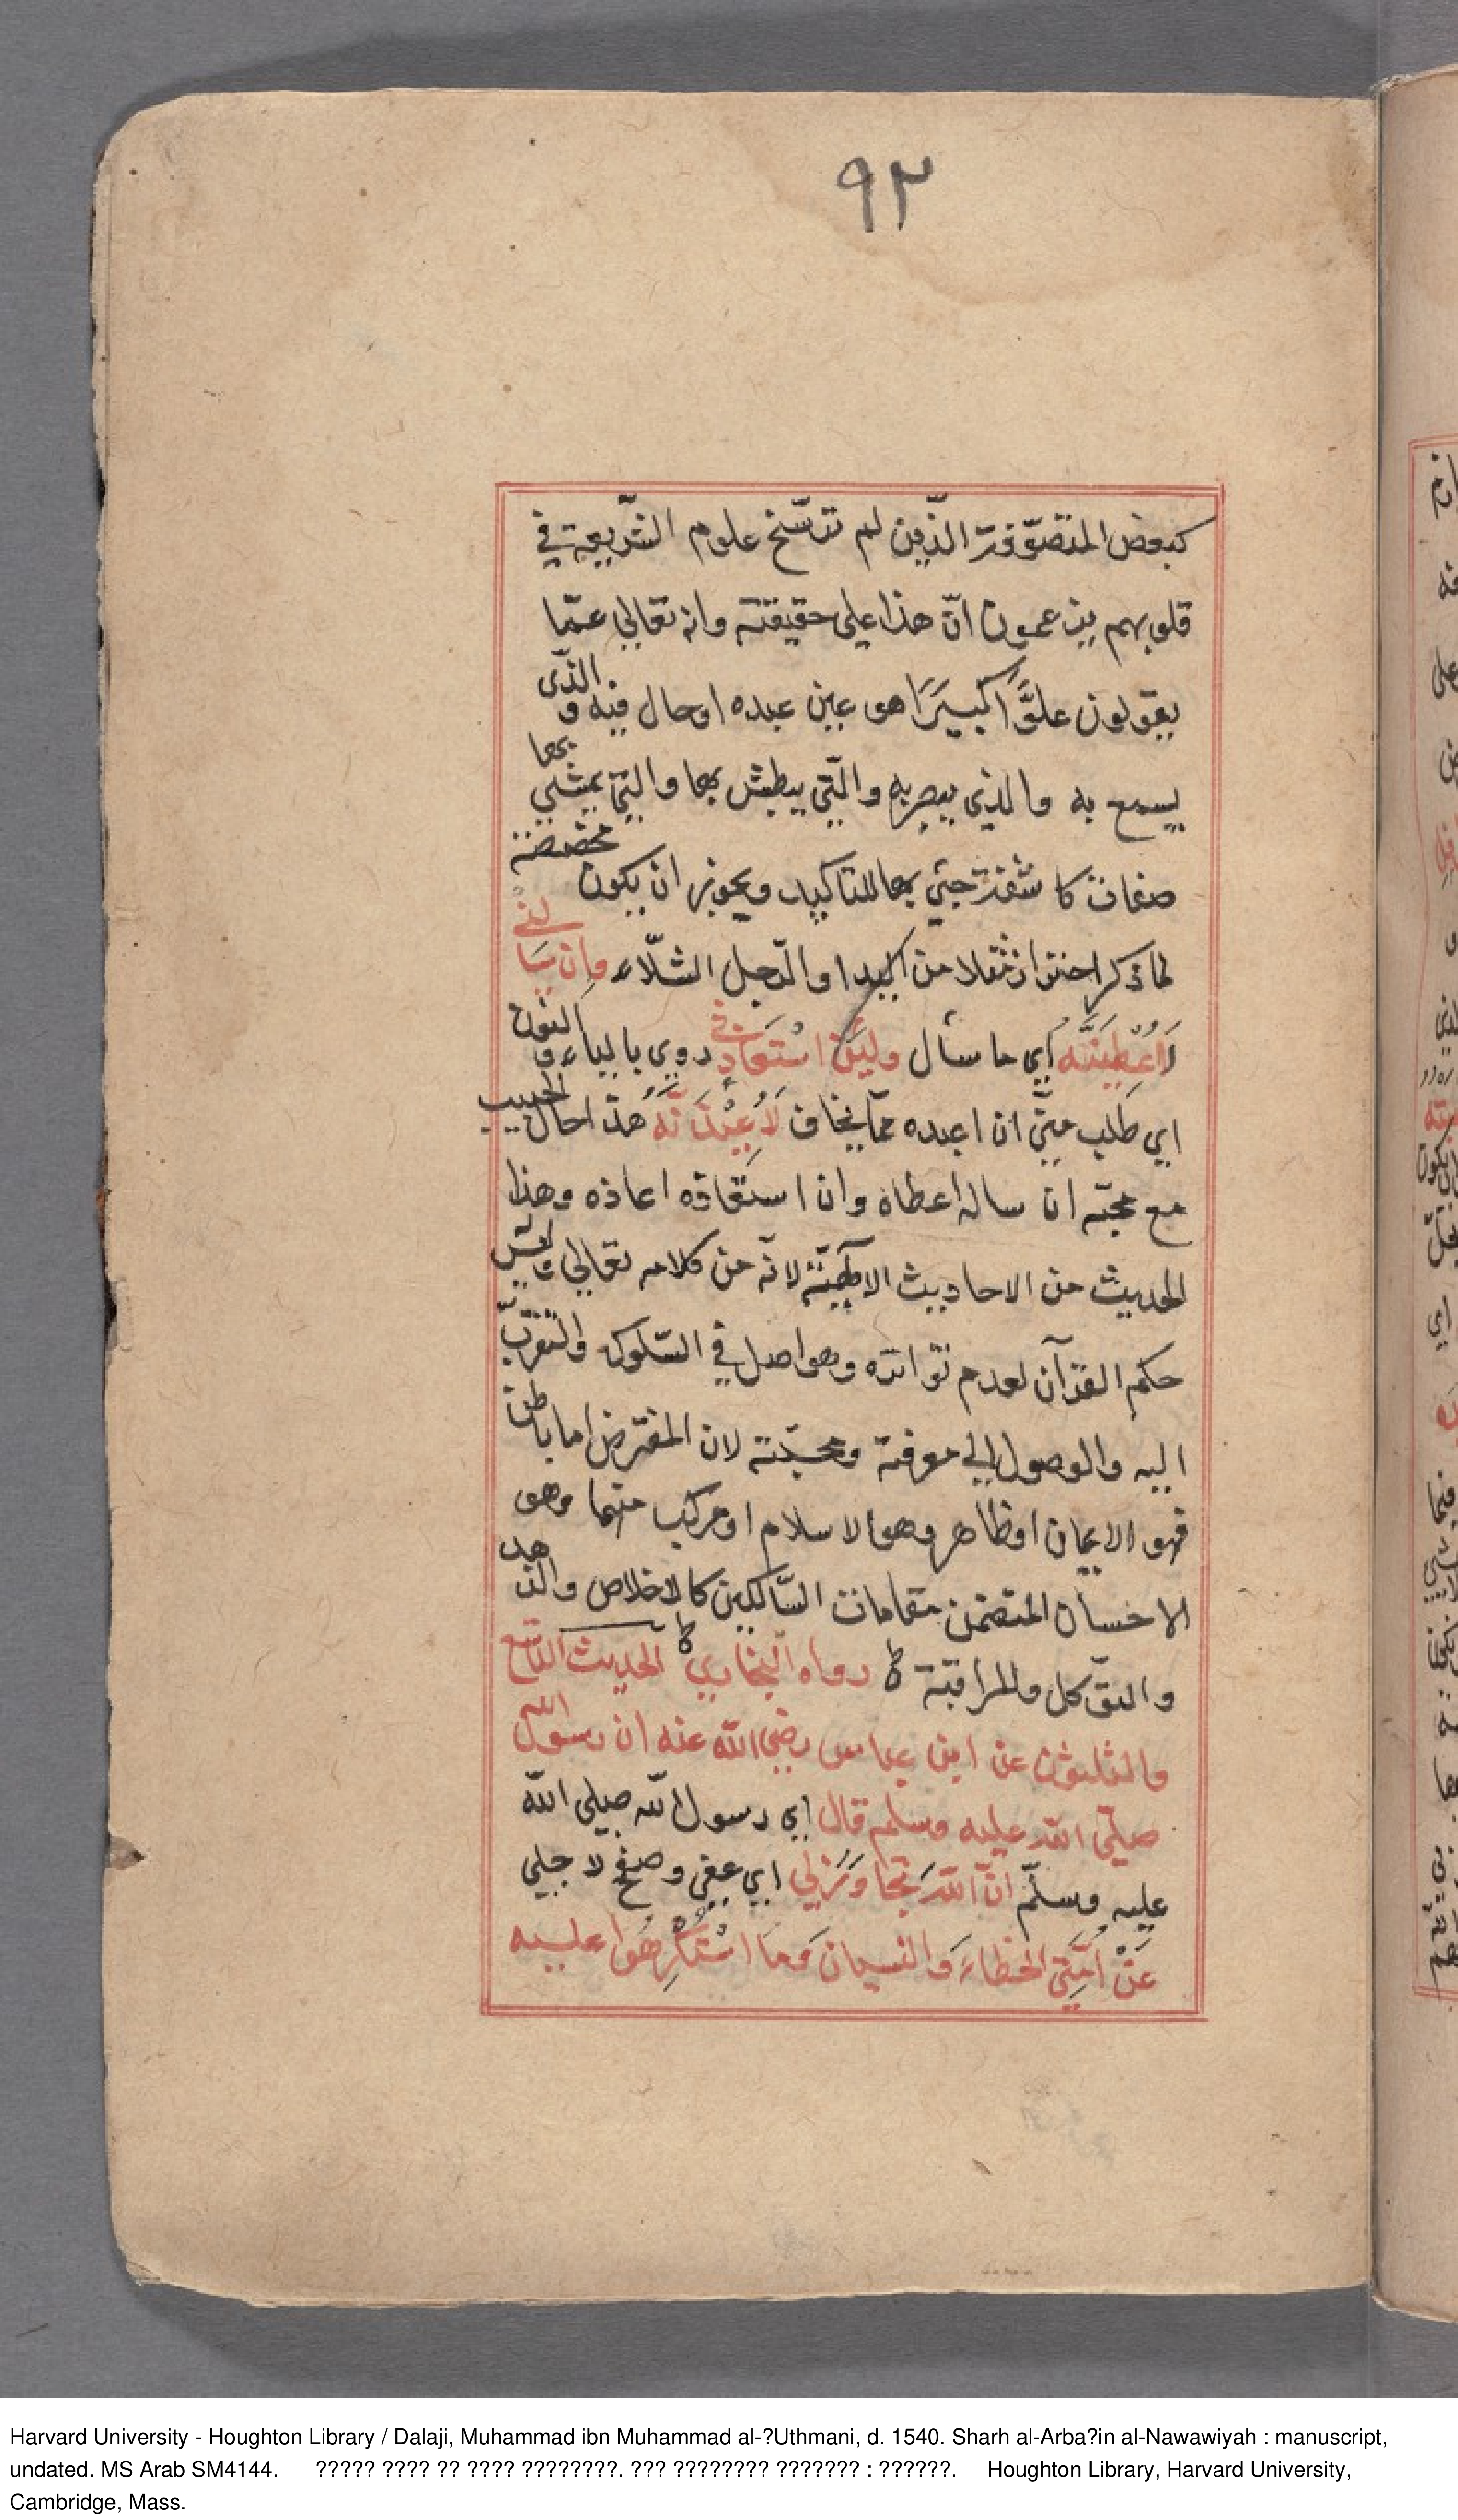 ٩٢
كبعض المتصوّفة الّذين لم ترسّخ علوم الشّريعة في
قلوبهم يزعمون انّ هذا على حقيقته وانه تعالى عمّا
يقولون علوًّا كبيرًا هو عين عبده او حال فيه و الذّى
يسمع به والذي يبصر به والّتي يبطش بها والتي يمشي بها
صفات كاشفة جيئ بها للتاكيد ويجوز ان يكون مخصصة
لما ذكر احترازا من اليد والرّجل الشلّاء وان سَالني
لَاُعْطِيَنَّه اي ما سأل ولَئِن اسْتَعَاذني روي بالباء و النون
اي طلب منّي ان اعيذه ممّا يخاف لَاُعِيْذَنَّهُ هذا حال الحبيب
مع محبّه ان ساله اعطاه وان استعاذه اعاذه وهذا
الحديث من الاحاديث الالٰهيّة لانّه من كلامه تعالى وليس
حكم القرآن لعدم تواتره وهو اصل في السّلوك والتقرّب
اليه والوصول الي معرفته ومحبّته لان المفترض اما باطن
فهو الايمان او ظاهر وهو الاسلام او مركب منهما وهو
الاحسان المتضمن مقامات السّالكين كالاخلاص والزهد
والتوّكل والمراقبة رواه البخاري الحديث التاسع
والثلثون عن ابن عباس رضي الله عنه ان رسول الله
صلّى الله عليه وسلم قال اي رسول الله صلى الله
عليه وسلّم انّ الله تجاوَزَ لي اي عفى وصفح لاجلي
عَنْ اُمَّتِي الخطاءَ والنسيانَ وَمَا اسْتُكْرِهُوا عليه
Harvard University - Houghton Library / Dalaji, Muhammad ibn Muhammad al-?Uthmani, d. 1540. Sharh al-Arba?in al-Nawawiyah : manuscript,
undated. MS Arab SM4144. ????? ???? ?? ???? ????????. ??? ???????? ??????? : ??????. Houghton Library, Harvard University,
Cambridge, Mass.